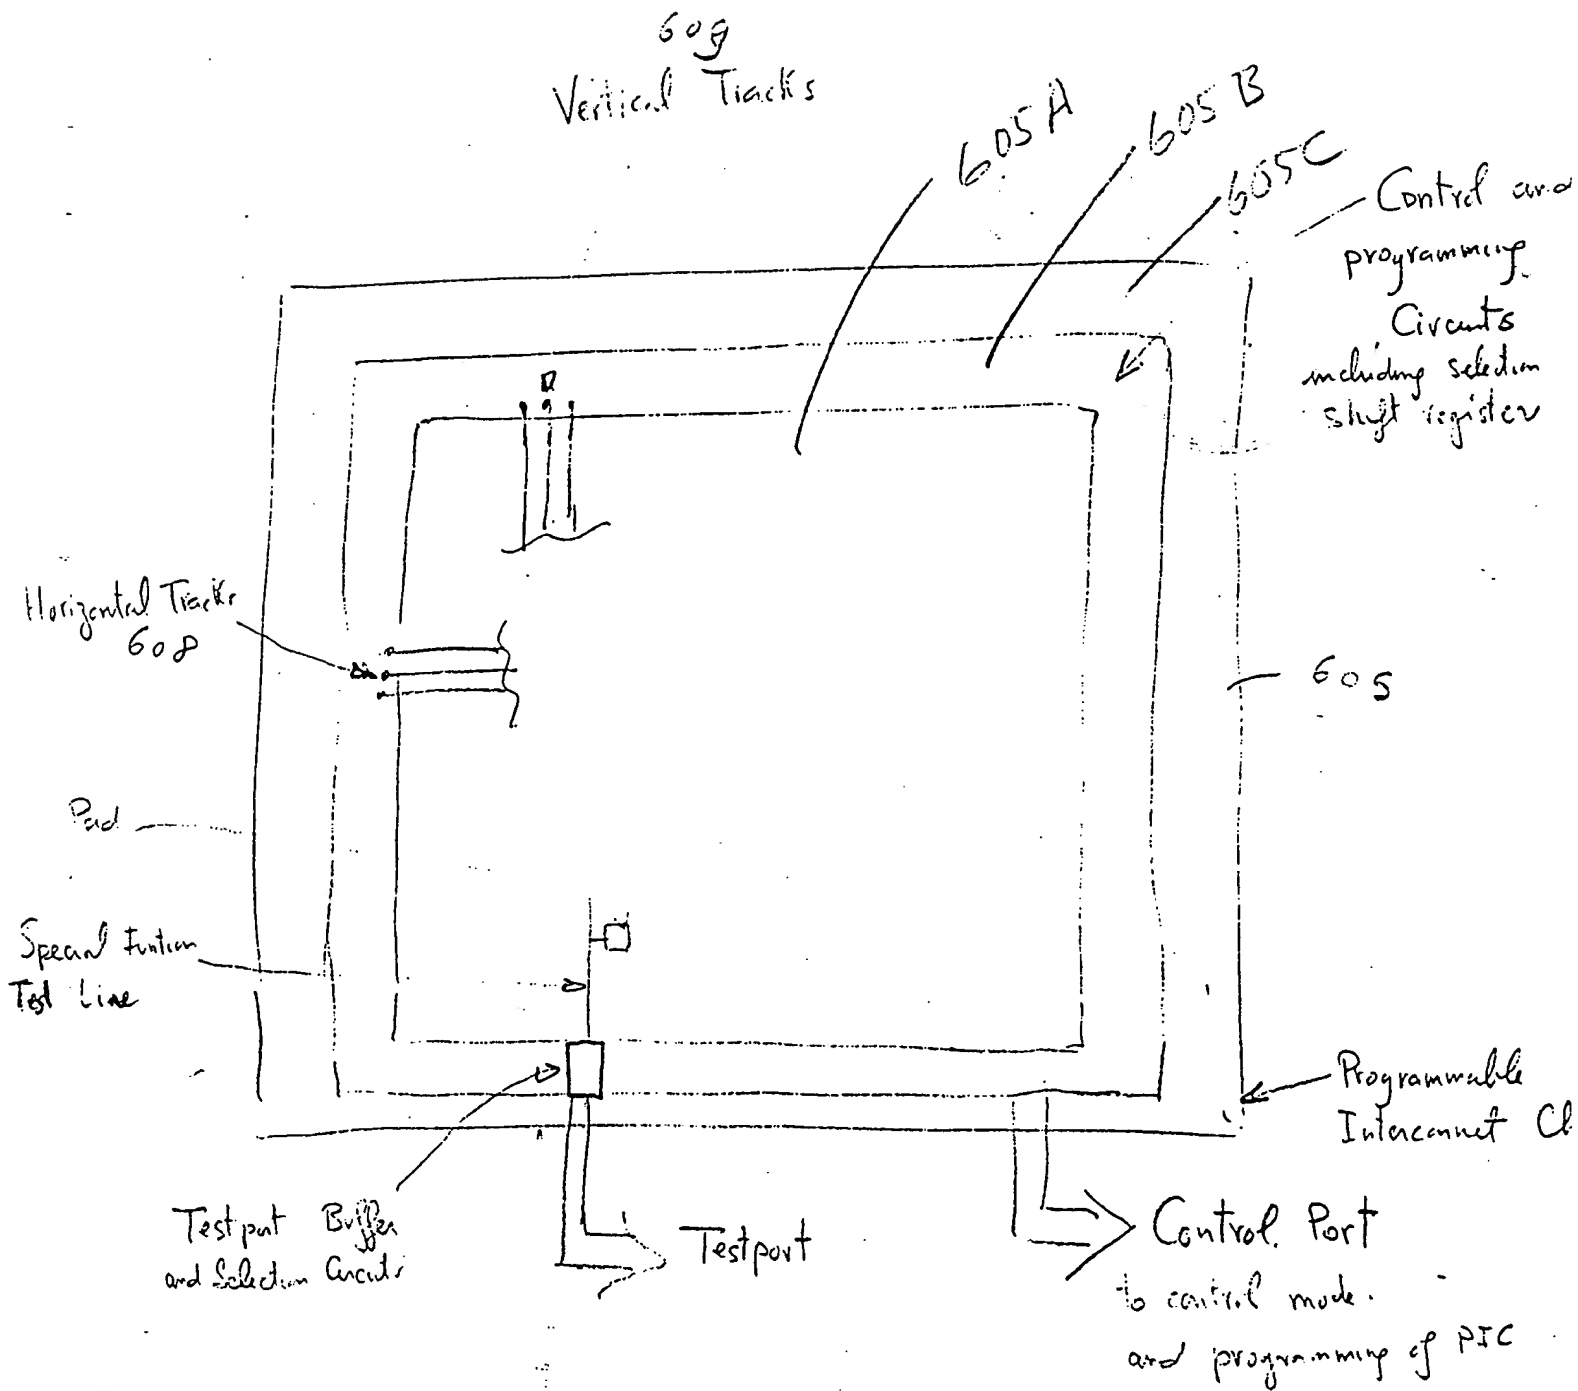 609
Vertical Tracks
605A
605B
605C
Control and
programming
Circuits
including selection
shift register
Horizontal Tracks
608
605
Pad
Special Funtion
Test Line
Programmable
Interconnet Ch
Testport Buffer
and Selection Circuits
Testport
Control Port
to control mode.
and programming of PIC